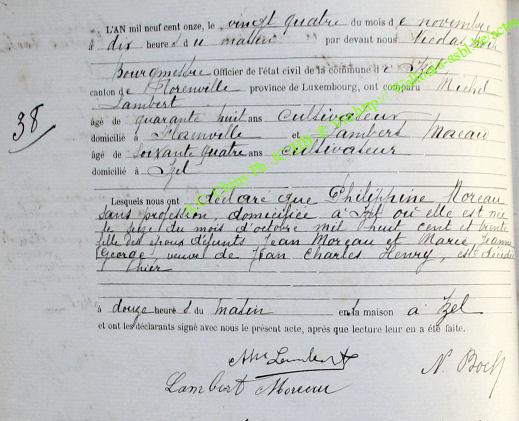 L'AN mil neuf cent onze, le vingt quatre du mois de novembre
à dix heures du matin par devant nous Nicolas
Bourgmestre Officier de l'état civil de la commune d'Izel,
canton de Florenville province de Luxembourg, ont comparu Michel
Lambert
âgé de quarante huit ans cultivateur
domicilié à Florenville et Lambert Moreau
âgé de soixante quatre ans cultivateur
domicilié à Izel
38
Lesquels nous ont déclaré que Philippine Moreau
sans profession, domiciliée à Izel où elle est née
le seize du mois d'octobre mil huit cent et trente
fille des époux défunts Jean Moreau et Marie Jeanne
George, veuve de Jean Charles Henry, est décédée
hier
à douze heures du matin en la maison à Izel
et ont les déclarants signé avec nous le présent acte, après que lecture leur en a été faite.
Lambert
Lambert Moreau
N.